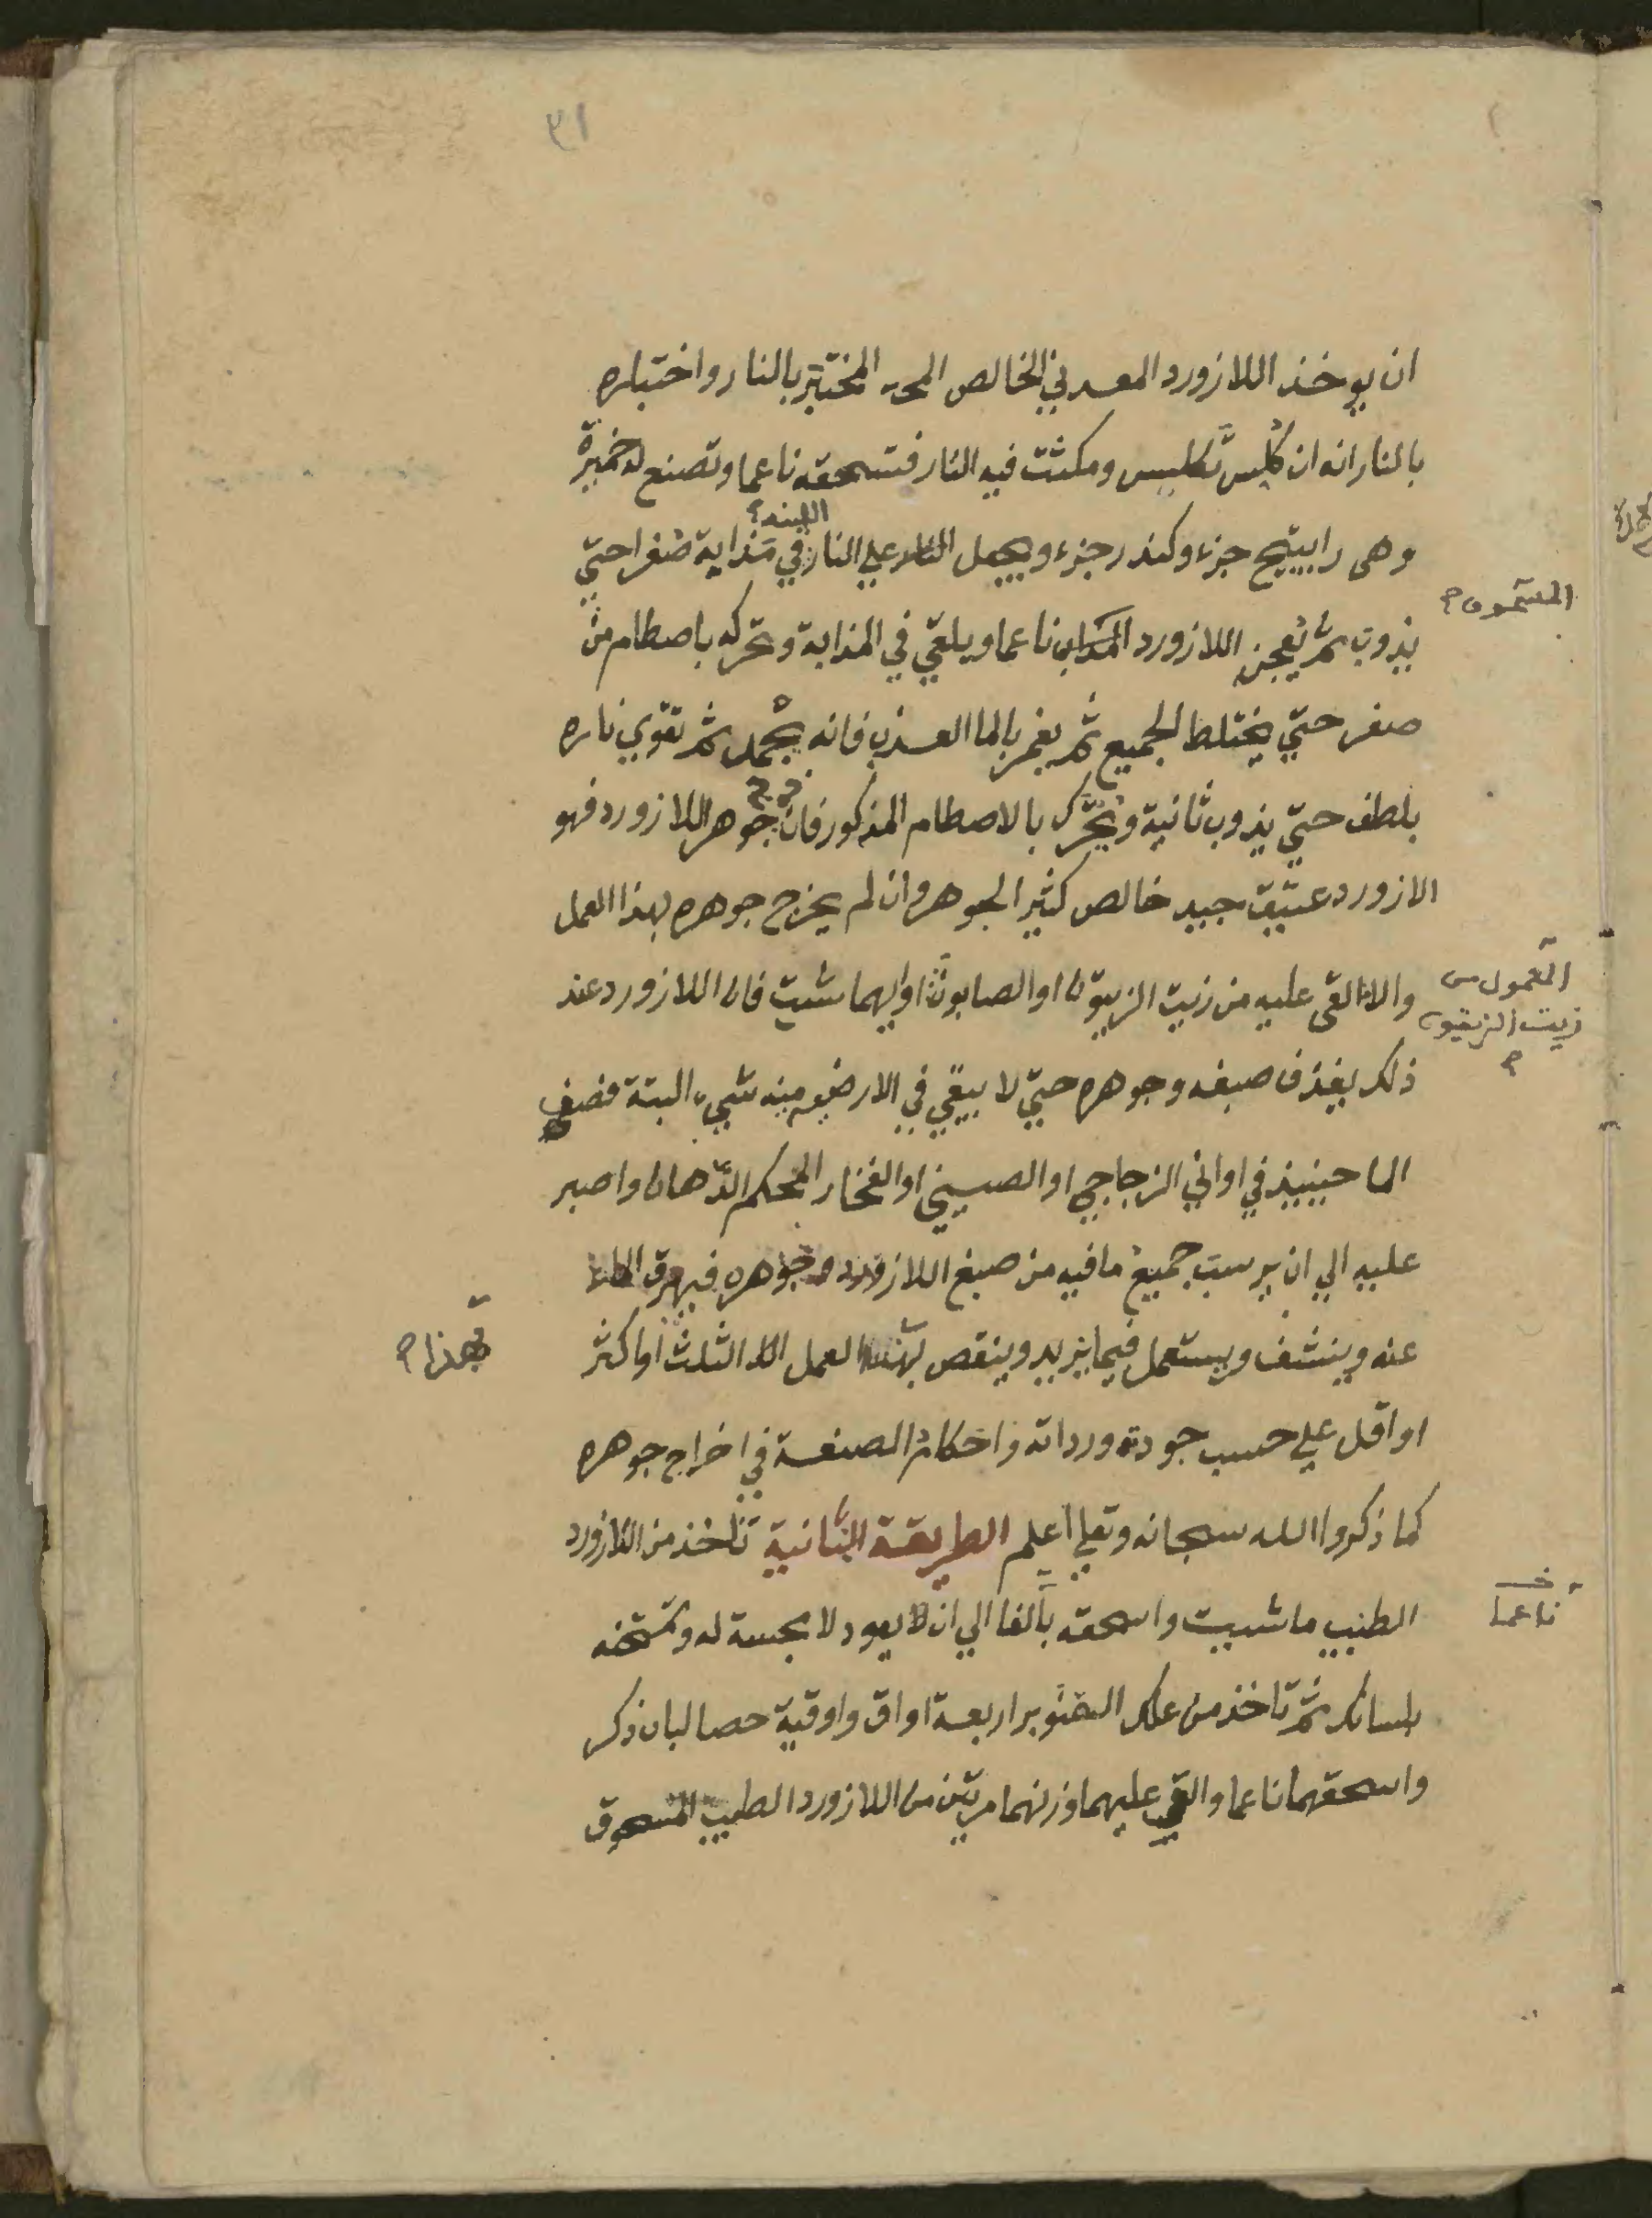 ٣١
ان يوخذ اللازورد المعدني الخالص المختبر بالنار واختباره
بالنار انه ان كُلّس تكليس ومكثت فيه النار فتسحقه ناعما وتصنع له خميرة
اللينه
وهى راتينج جزء وكندر جزء ويجعل على النار في مذابة صفر حتي
المسحوق
يذوب ثم يُعجن اللازورد ناعما ويلقي في المذابة وتحركه باصطام من
صفر حتي يختلط الجميع ثم يغمر بالما العذب فانه يجمد ثم تقوي ناره
خرج
بلطف حتي يذوب ثانية ويُحرّك بالاصطام المذكور فان جوهر اللازورد فهو
الازورد عتيق جيد خالص كثير الجوهر وان لم يخرج جوهره بهذا العمل
المعمول من
زيت الزيتون
والا القى عليه من زيت الزيتون او الصابون او ايهما شيت فان اللازورد عند
ذلك يقذف صبغه وجوهره حتي لا يبقي في الارضيه منه شيء البتة فضف
الما حينيذ في اواني الزجاجي او الصيني او الفخار المحكم الدّهان واصبر
عليه الي ان يرسب جميع ما فيه من صبغ اللازورد وجوهره فيهرق الماء
بهذا
عنه وينشف ويستعمل فيما يزيد وينقص العمل الثلث او اكثر
او اقل علي حسب جودته ورداته واحكام الصنعة في اخراج جوهره
كما ذكروا الله سبحانه وتعلي اعلم الطريقة الثانية تناخذ من اللازورد
ناعما
الطيب ما شيت واسحقه بالغا الي ان لا يعود لا مجسة له وتمتحنه
بلسانك ثم تاخذ من علك الصنوبر اربعة اواق واوقية حصا لبان ذكر
واسحقهما ناعما والقي عليهما وزنهما مرتين من اللازورد الطيب المسحوق